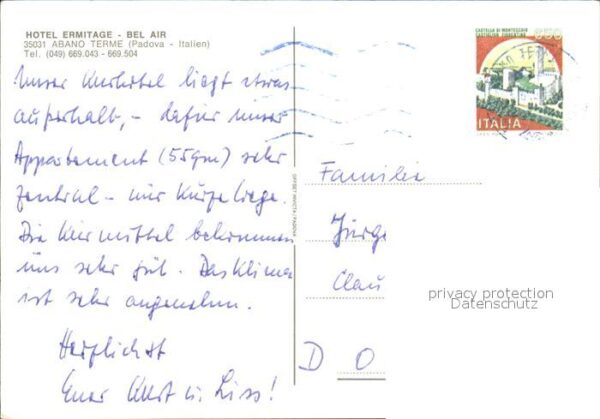 HOTEL ERMITAGE - BEL AIR
35031 ABANO TERME (Padova - Italien)
Tel. (049) 669.043 - 669.504
Unser Kurhotel liegt etwas
außerhalb, - dafür unser
Appartement (55qm) sehr
zentral - nur kurze Wege.
Die Kurmittel bekommen
uns sehr gut. Das Klima
ist sehr angenehm.
Herzlichst
Euer Kurt u. Liss!
CASTELLO DI MONTECCHIO
CASTIGLION FIORENTINO
650
ITALIA
Familie
Jürge
Clau
D
O
privacy protection
Datenschutz